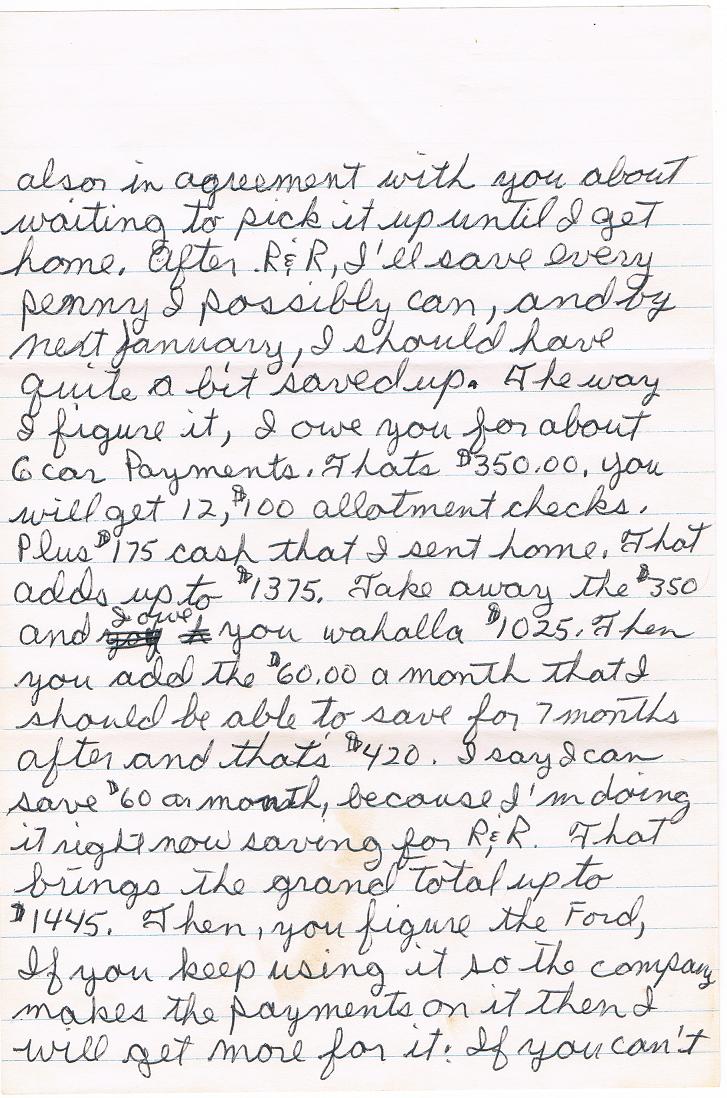 also in agreement with you about
waiting to pick it up until I get
home. After R&R, I'll save every
penny I possibly can, and by
next January, I should have
quite a bit saved up. The way
I figure it, I owe you for about
6 car Payments. Thats $350.00, you
will get 12, $100 allotment checks.
Plus $175 cash that I sent home. That
adds up to $1375. Take away the $350
I owe
and you wahalla $1025. Then
you add the $60.00 a month that I
should be able to save for 7 months
after and that's $420. I say I can
save $60 a month, because I'm doing
it right now saving for R&R. That
brings the grand total up to
$1445. Then, you figure the Ford,
If you keep using it so the company
makes the payments on it then I
will get more for it. If you can't